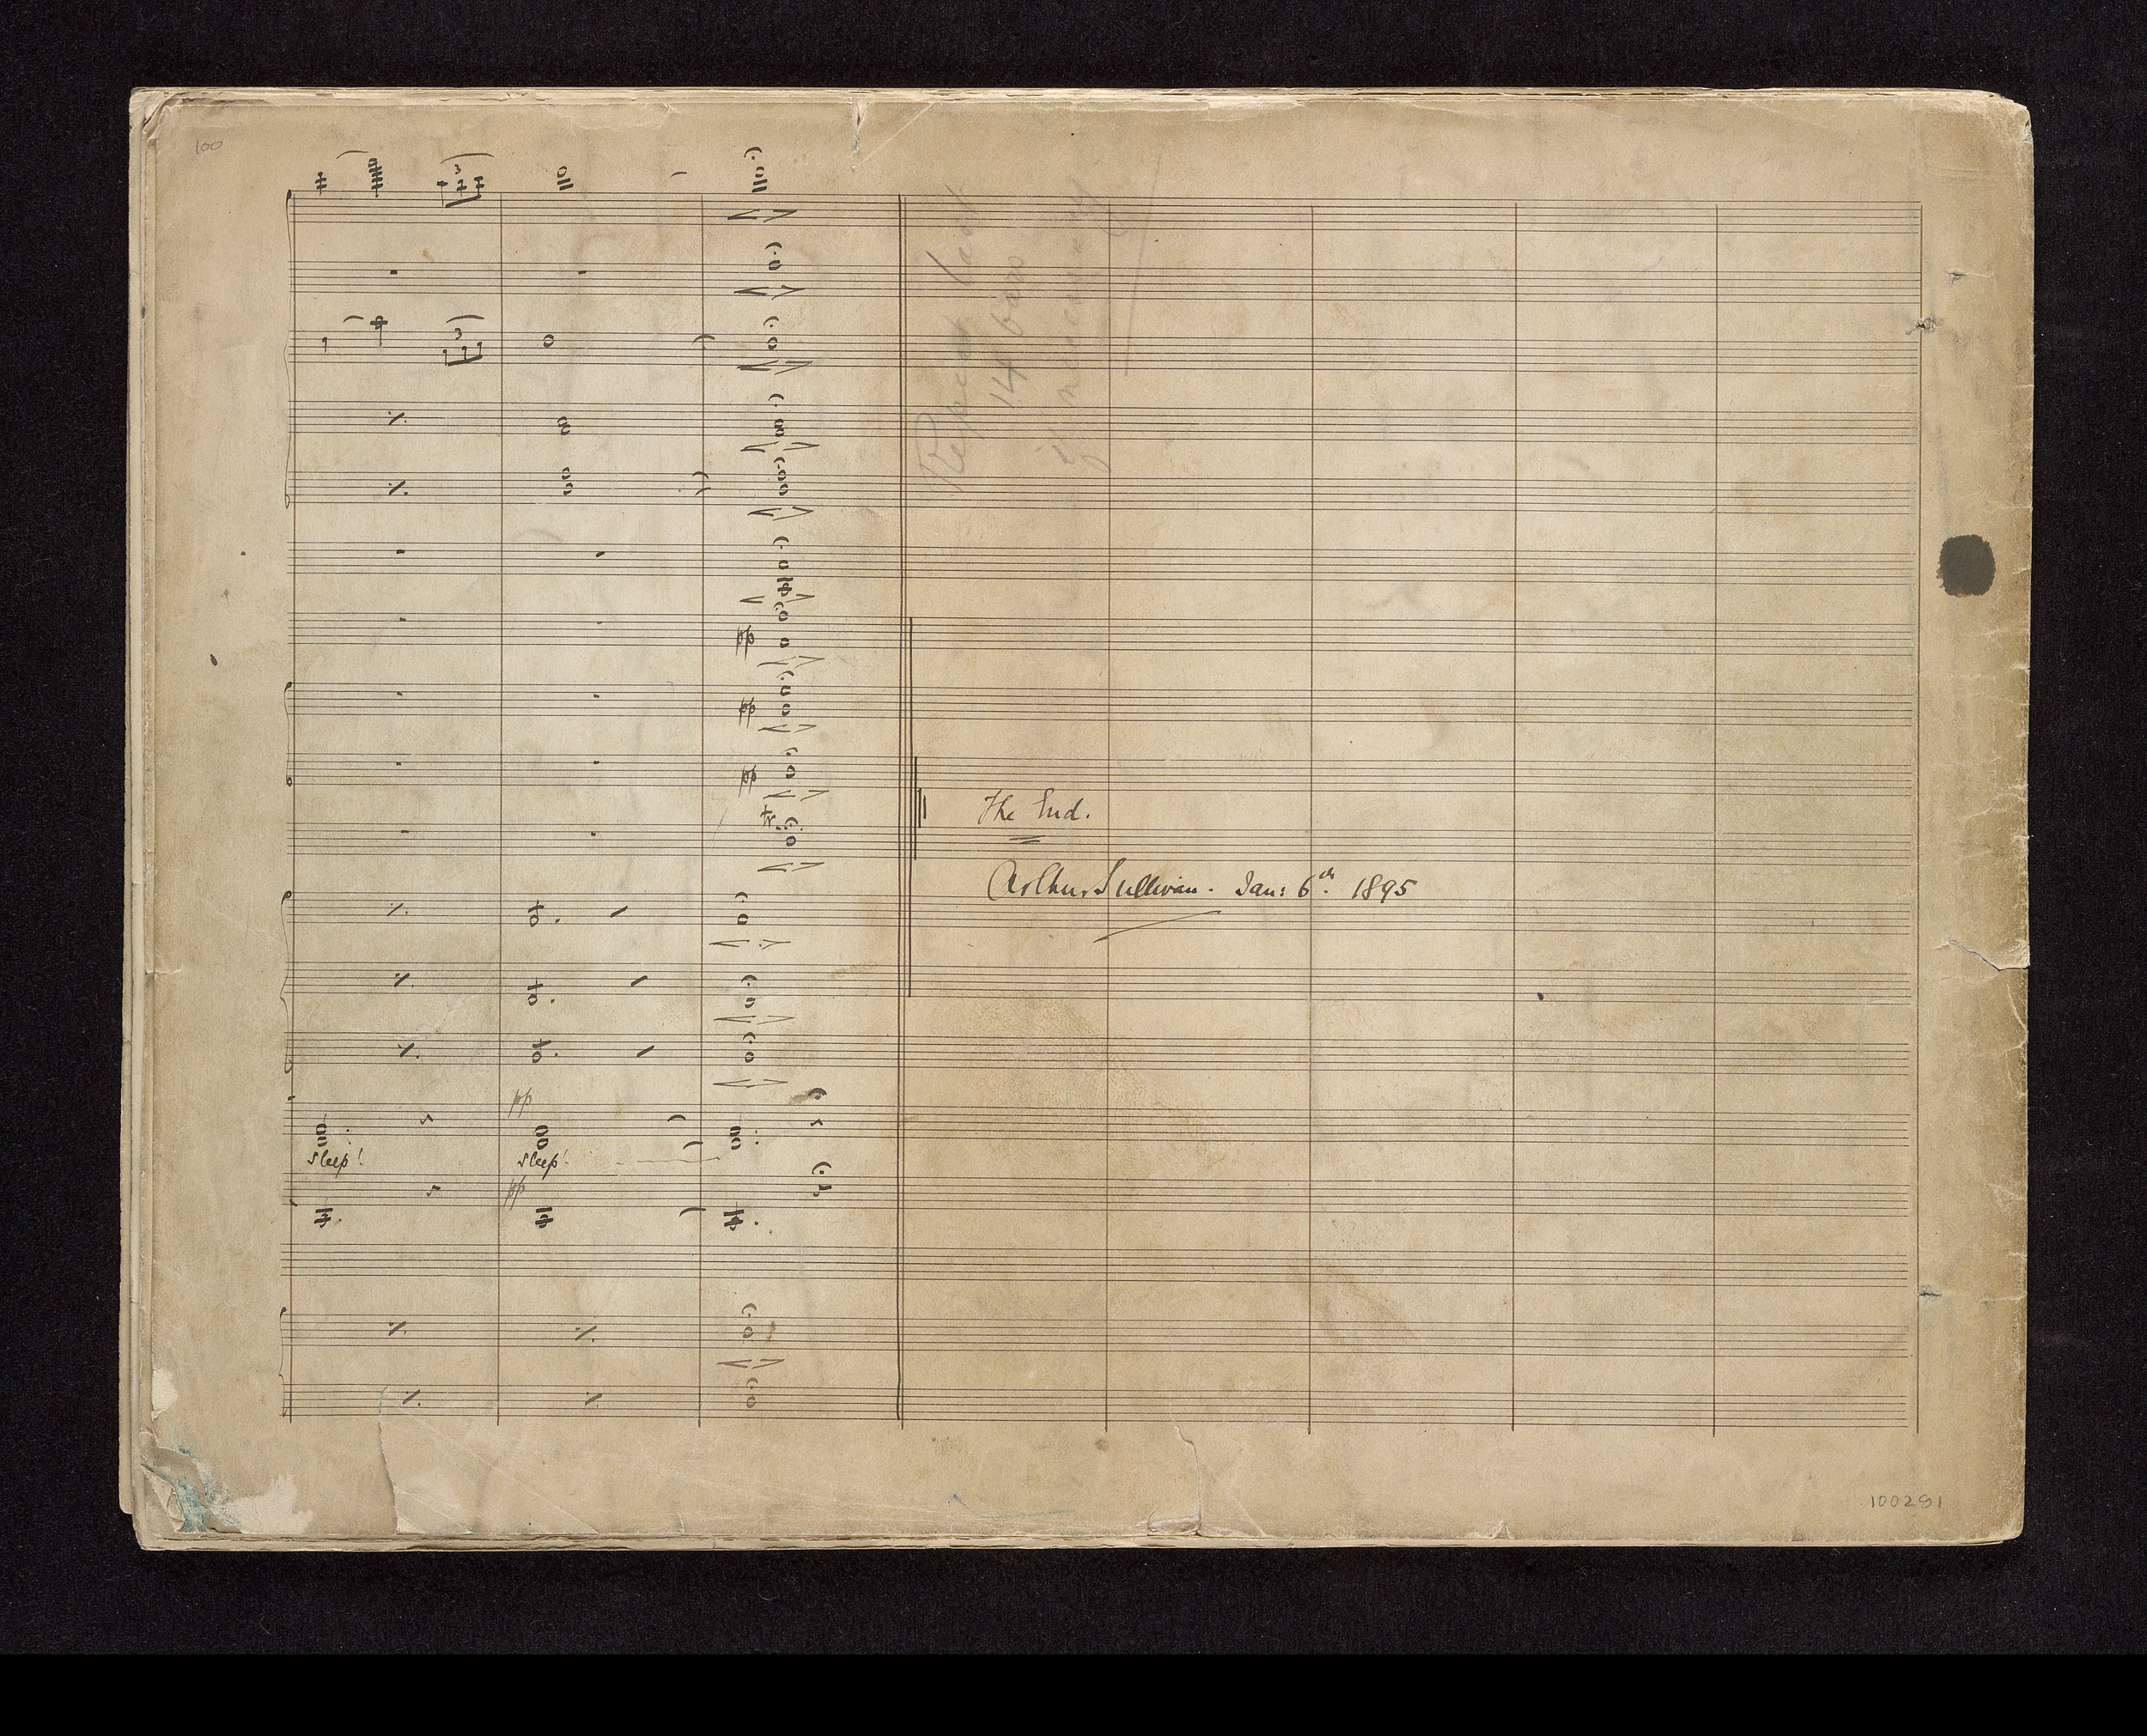 100
Repeat last
14 bars
if necessary
pp
pp
pp
tr.
The End.
Arthur Sullivan. Jan: 6th. 1895
pp
sleep! sleep!
pp
100291